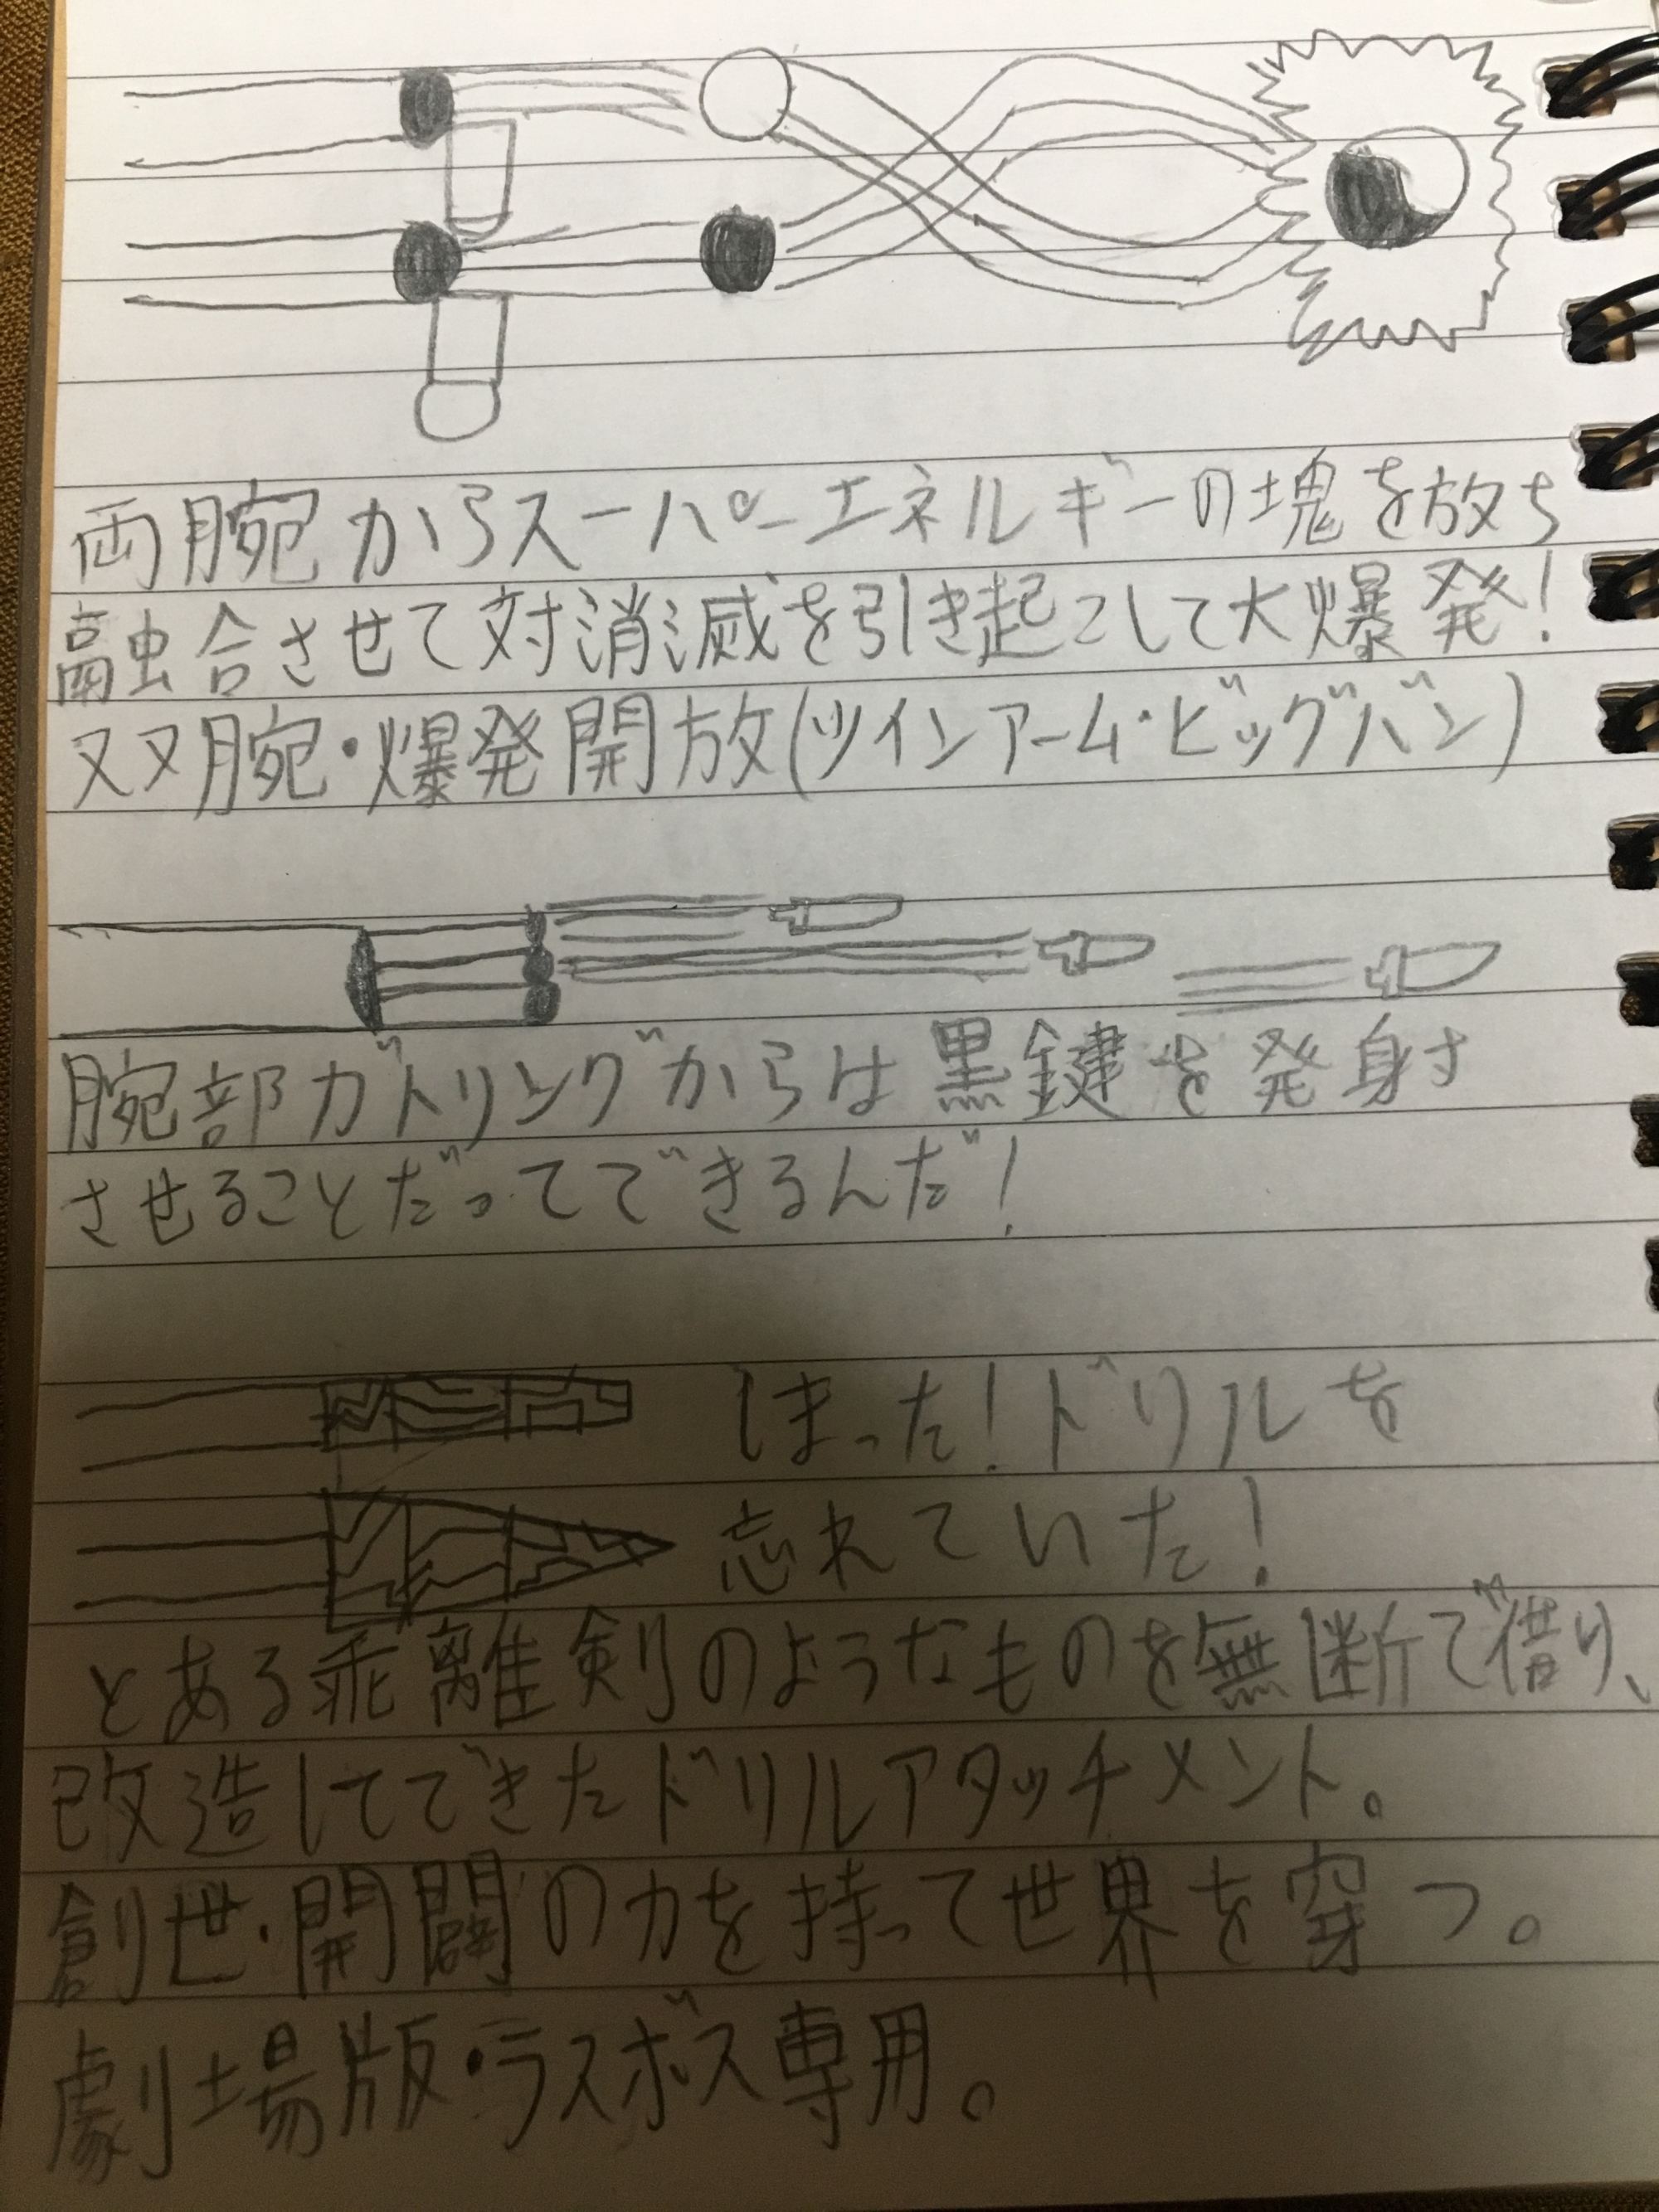 両腕からスーパーエネルギーの塊を放ち
融合させて対消滅を引き起こして大爆発!
双腕・爆発開放(ツインアーム・ビッグバン)
腕部ガトリングからは黒鍵を発射さ
させることだってできるんだ!
しまった!ドリルを
忘れていた!
とある乖離剣のようなものを無断で借り、
改造してできたドリルアタッチメント。
創世・開闢の力を持って世界を穿つ。
劇場版・ラスボス専用。